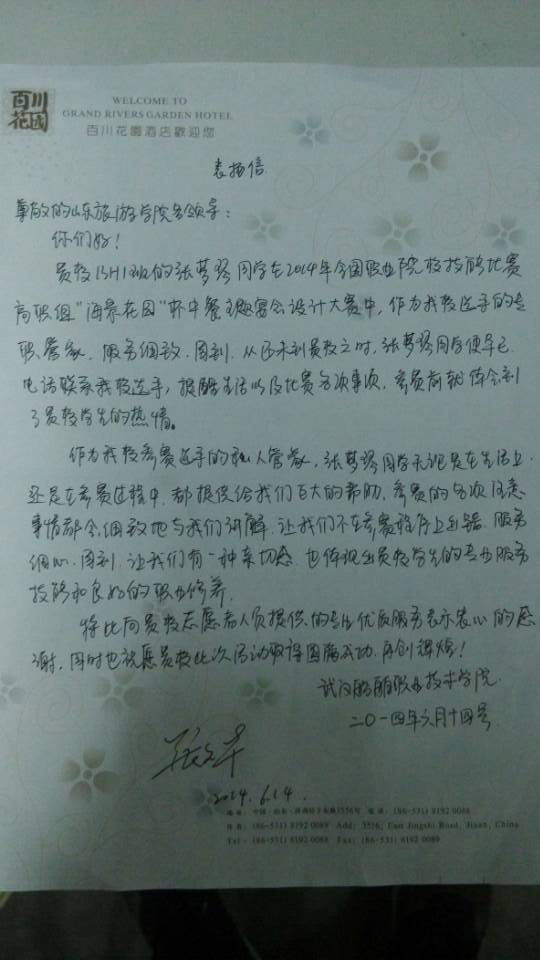 百川
花園
WELCOME TO
GRAND RIVERS GARDEN HOTEL
百川花園酒店歡迎您
表扬信
尊敬的山东旅游学院各领导：
你们好！
贵校13H1班的张梦琴同学在2014年全国职业院校技能比赛
高职组"海景花园"杯中餐主题宴会设计大赛中，作为我校选手的专
职管家，服务细致、周到。从还未到贵校之时，张梦琴同学便早已
电话联系我校选手，提醒生活以及比赛各项事项，参赛前就体会到
了贵校学生的热情。
作为我校参赛选手的私人管家，张梦琴同学无论是在生活上
还是在参赛过程中，都提供给我们巨大的帮助，参赛的各项注意
事情都会细致地与我们讲解，让我们不在参赛程序上出错。服务
细心、周到，让我们有一种亲切感，也体现出贵校学生的专业服务
技能和良好的职业修养。
特此向贵校志愿者人员提供的专业优质服务表示衷心的感
谢，同时也祝愿贵校此次活动取得圆满成功，再创辉煌！
武汉 职业技术学院
二〇一四年六月十四号
2014.6.14.
地址：中国·山东·济南经十东路3556号 电话：(86-531) 8192 0088
传真：(86-531) 8192 0089 Add: 3556, East Jingshi Road, Jinan, China
Tel: (86-531) 8192 0088 Fax: (86-531) 8192 0089